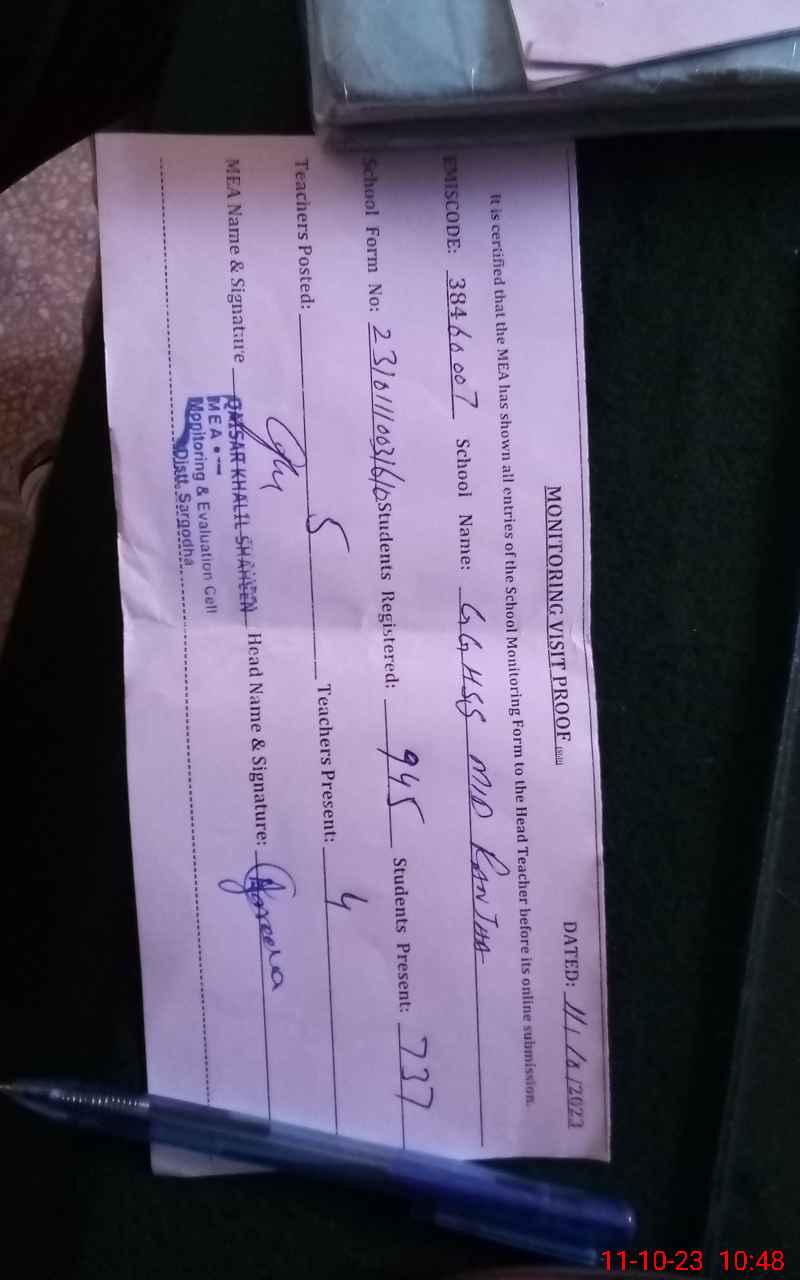 MONITORING VISIT PROOF
DATED: 11/10/2023
It is certified that the MEA has shown all entries of the School Monitoring Form to the Head Teacher before its online submission.
EMISCODE: 38460007 School Name: GGHSS MID RANJHA
School Form No: Students Registered: 945 Students Present: 737
Teachers Posted: 5 Teachers Present: 4
MEA Name & Signature Head Name & Signature:
QAISAR KHALIL SHAHEEN
MEA
Monitoring & Evaluation Cell
Distt. Sargodha
11-10-23 10:48